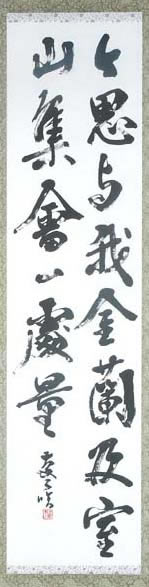 今思与我金蘭及室
山集會一處量